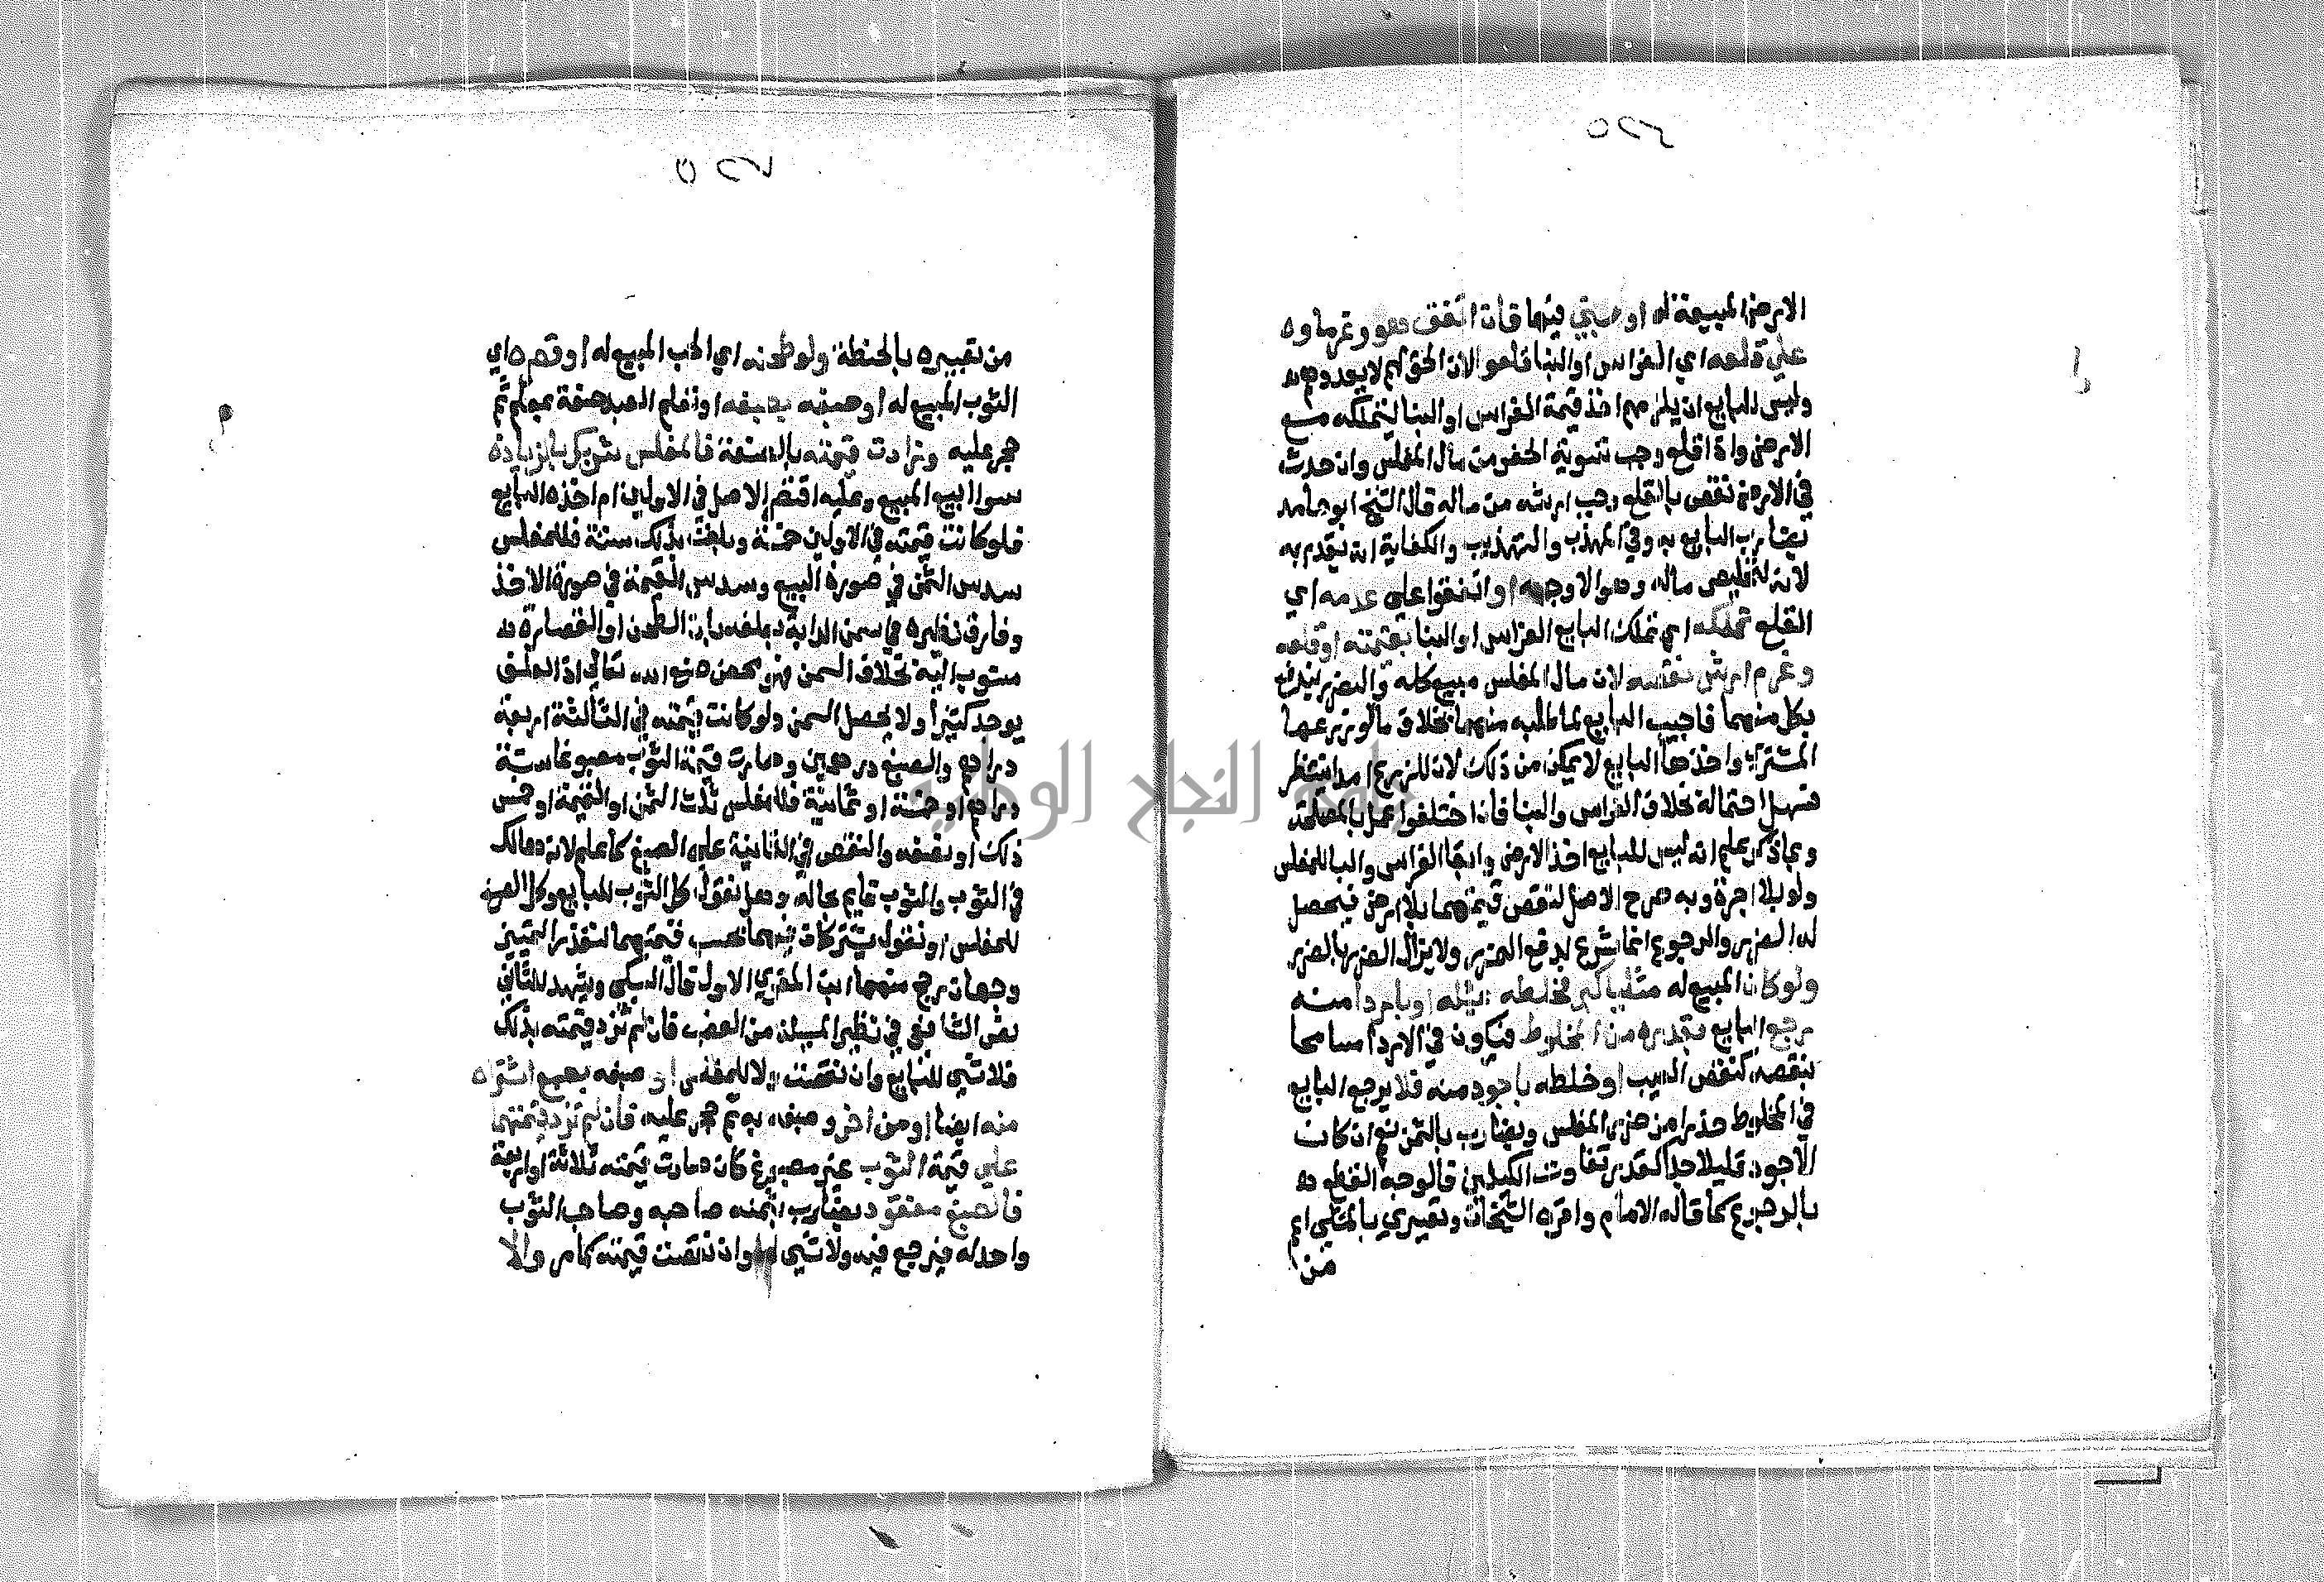 ٥٢٦
الارض المبيعة له او بني فيها فان اتفق هو وغرماوه
علي قلعه اي الغراس او البنا قلعو الان الحق لهم لا يعدوهم
وليس للبايع ان يلزمهم اخذ قيمة الغراس او البنا ليتملكه مع
الارض واذا قلع وجب تسوية الحفر من مال المفلس وان حدث
في الارض نقص بالقلع وجب ارشه من ماله قال الشيخ ابو حامد
يضارب البايع به وفي المهذب والتهذيب والكفاية انه يقدم به
لانه لتخليص ماله وهو الاوجه او اتفقوا علي عدمه اي
القلع تملكه اي تملك البايع الغراس او البنا بقيمته او قلعه
وغرم ارش نقصه لان مال المفلس مبيع كله والضرر يندفع
بكل منهما فاجيب البايع لما طلبه منهما بخلاف ما لو زرعها
المشتري واخذها البايع لا يمكن من ذلك لان للزرع امدا ينتظر
فسهل احتماله بخلاف الغراس والبنا فان اختلفوا عمل بالمصلحة
وبما ذكر علم انه ليس للبايع اخذ الارض وابقا الغراس والبنا للمفلس
ولو بلا اجرة وبه صرح الاصل لنقص قيمتهما بلا ارض فيحصل
له الضرر والرجوع انما شرع لدفع الضرر ولا يزال الضرر بالضرر
ولو كان المبيع له مثليا كبر فخلطه بمثله او باردا منه
رجع البايع بقدره من المخلوط فيكون في الاردا مسامحا
بنقصه كنقص العيب او خلطه باجود منه فلا يرجع البايع
في المخلوط حذرا من ضرر المفلس ويضارب بالثمن نعم ان كان
الاجود قليلا جدا كقدر تفاوت الكيلين فالوجه القطع
بالرجوع كما قاله الامام واقره الشيخان وتعبيري بالمثلي اعم
من
٥٢٧
من تعبيره بالحنطة ولو طحنه اي الحب المبيع له او قصره اي
الثوب المبيع له او صبغه بصبغه او تعلم العبد صنعة بمعلم ثم
حجر عليه وزادت قيمته بالصنعة فالمفلس شريك بالزيادة
سوا ابيع المبيع وعليه اقتصر الاصل في الاولين ام اخذه البايع
فلو كانت قيمته في الاولين خمسة وبلغت بذلك ستة فللمفلس
سدس الثمن في صورة البيع وسدس القيمة في صورة الاخذ
وفارق نظيره في سمن الدابة بعلفه بان الطحن او القصارة
منسوب اليه بخلاف السمن فهو محض صنع الله تعالي اذ العلف
يوجد كثيرا ولا يحصل السمن ولو كانت قيمته في الثالثة اربعة
دراهم والصبغ درهمين وصارت قيمة الثوب مصبوغا ستة
دراهم او خمسة او ثمانية فللمفلس ثلث الثمن او القيمة او خمس
ذلك او نصفه والنقص في الثانية علي الصبغ كما علم لانه هالك
في الثوب والثوب قايم بحاله وهل نقول كل الثوب للبايع وكل الصبغ
للمفلس او نقول يشتركان فيهما بحسب قيمتهما لتعذر التمييز
وجهان رجح منهما ابن المقري الاول قال السبكي ويشهد للثاني
نص الشافعي في نظير المسيلة من الغصب فان لم تزد قيمته بذلك
فلا شي للبايع وان نقصت ولا للمفلس او صبغه بصبغ اشتراه
منه ايضا او من اخر وصبغه به ثم حجر عليه فان لم تزد قيمتهما
علي قيمة الثوب غير مصبوغ كان صارت قيمته ثلاثة او اربعة
فالصبغ مفقود يضارب بثمنه صاحبه وصاحب الثوب
واجد له فيرجع فيه ولا شي له وان نقصت قيمته كما مر والا